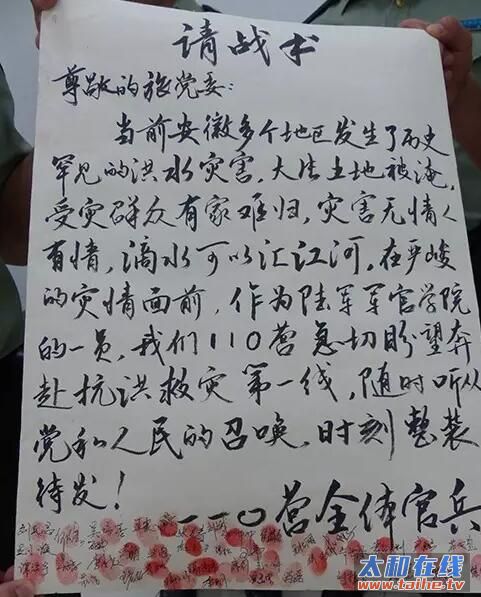 请战书
尊敬的旅党委:
当前安徽多个地区发生了历史
罕见的洪水灾害,大片土地被淹,
受灾群众有家难归,灾害无情人
有情,滴水可以汇江河,在严峻
的灾情面前,作为陆军军官学院
的一员,我们110营急切盼望奔
赴抗洪救灾第一线,随时听从
党和人民的召唤,时刻整装
待发!
一一〇营全体官兵
太和在线
www.taihe.tv